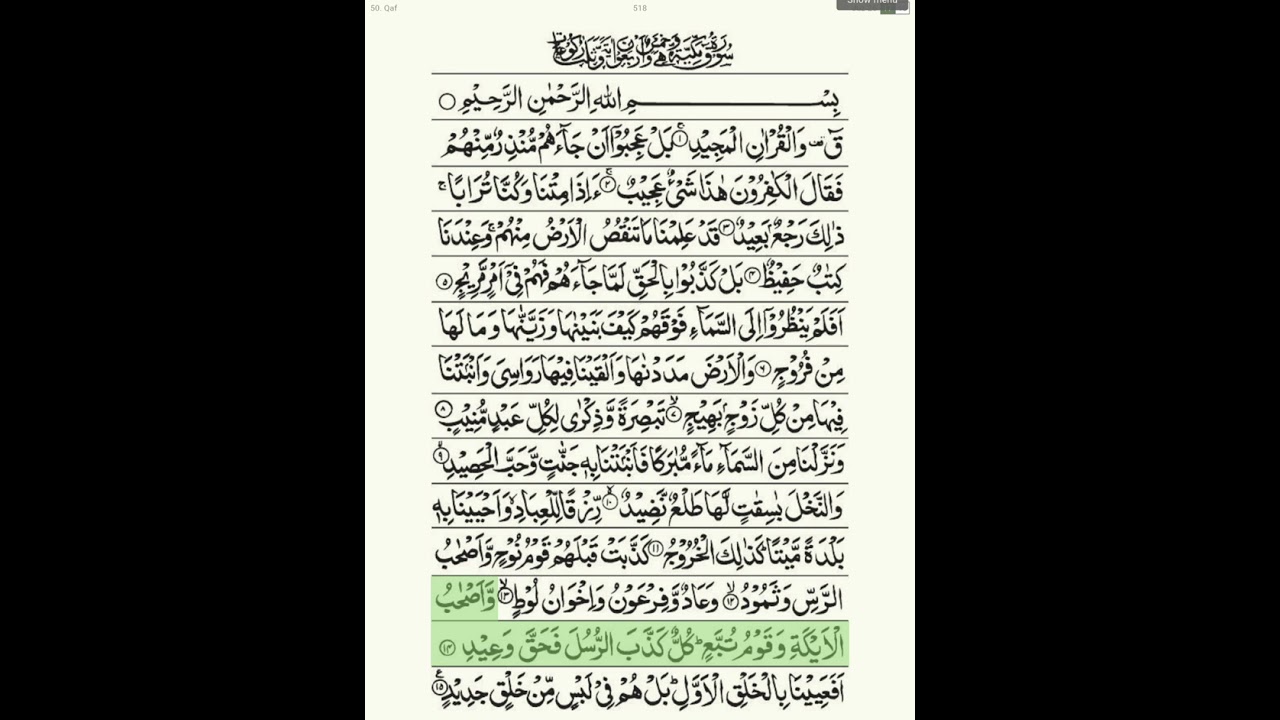 50. Qaf
518
Show menu
سُوْرَةُ قٓ مَكِّيَّةٌ وَّهِيَ خَمْسٌ وَّاَرْبَعُوْنَ اٰيَةً وَّثَلٰثُ رُكُوْعَاتٍ
بِسْــــمِ اللهِ الرَّحْمٰنِ الرَّحِيْمِ ○
قٓ ۚ وَالْقُرْاٰنِ الْمَجِيْدِ ۚ﴿۱﴾ بَلْ عَجِبُوْۤا اَنْ جَآءَهُمْ مُّنْذِرٌ مِّنْهُمْ
فَقَالَ الْكٰفِرُوْنَ هٰذَا شَيْءٌ عَجِيْبٌ ۚ﴿۲﴾ ءَاِذَا مِتْنَا وَكُنَّا تُرَابًا ۚ
ذٰلِكَ رَجْعٌۢ بَعِيْدٌ ﴿۳﴾ قَدْ عَلِمْنَا مَا تَنْقُصُ الْاَرْضُ مِنْهُمْ ۚ وَعِنْدَنَا
كِتٰبٌ حَفِيْظٌ ﴿۴﴾ بَلْ كَذَّبُوْا بِالْحَقِّ لَمَّا جَآءَهُمْ فَهُمْ فِيْۤ اَمْرٍ مَّرِيْجٍ ﴿۵﴾
اَفَلَمْ يَنْظُرُوْۤا اِلَى السَّمَآءِ فَوْقَهُمْ كَيْفَ بَنَيْنٰهَا وَزَيَّنّٰهَا وَمَا لَهَا
مِنْ فُرُوْجٍ ﴿۶﴾ وَالْاَرْضَ مَدَدْنٰهَا وَاَلْقَيْنَا فِيْهَا رَوَاسِيَ وَاَنْۢبَتْنَا
فِيْهَا مِنْ كُلِّ زَوْجٍۭ بَهِيْجٍ ۙ﴿۷﴾ تَبْصِرَةً وَّذِكْرٰى لِكُلِّ عَبْدٍ مُّنِيْبٍ ﴿۸﴾
وَنَزَّلْنَا مِنَ السَّمَآءِ مَآءً مُّبٰرَكًا فَاَنْۢبَتْنَا بِهٖ جَنّٰتٍ وَّحَبَّ الْحَصِيْدِ ۙ﴿۹﴾
وَالنَّخْلَ بٰسِقٰتٍ لَّهَا طَلْعٌ نَّضِيْدٌ ۙ﴿۱۰﴾ رِّزْقًا لِّلْعِبَادِ ۙ وَاَحْيَيْنَا بِهٖ
بَلْدَةً مَّيْتًا ؕ كَذٰلِكَ الْخُرُوْجُ ﴿۱۱﴾ كَذَّبَتْ قَبْلَهُمْ قَوْمُ نُوْحٍ وَّاَصْحٰبُ
الرَّسِّ وَثَمُوْدُ ۙ﴿۱۲﴾ وَعَادٌ وَّفِرْعَوْنُ وَاِخْوَانُ لُوْطٍ ۙ﴿۱۳﴾ وَّاَصْحٰبُ
الْاَيْكَةِ وَقَوْمُ تُبَّعٍ ؕ كُلٌّ كَذَّبَ الرُّسُلَ فَحَقَّ وَعِيْدِ ﴿۱۴﴾
اَفَعَيِيْنَا بِالْخَلْقِ الْاَوَّلِ ؕ بَلْ هُمْ فِيْ لَبْسٍ مِّنْ خَلْقٍ جَدِيْدٍ ﴿۱۵﴾